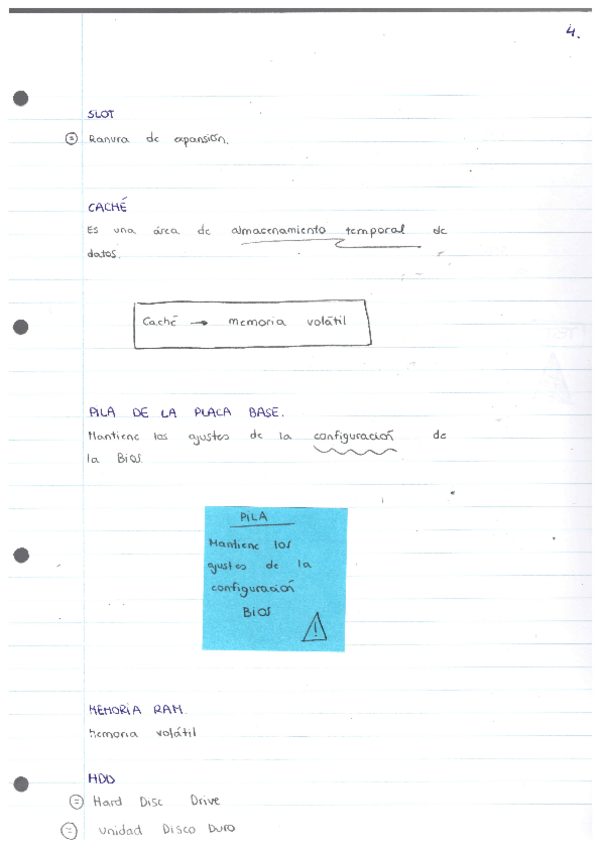 4.
SLOT
= Ranura de expansión.
CACHÉ
Es una área de almacenamiento temporal de
datos.
Caché → memoria volátil
PILA DE LA PLACA BASE.
Mantiene los ajustes de la configuración de
la Bios
PILA
Mantiene los
ajustes de la
configuración
Bios
!
MEMORIA RAM.
Memoria volátil
HDD
= Hard Disc Drive
= Unidad Disco Duro